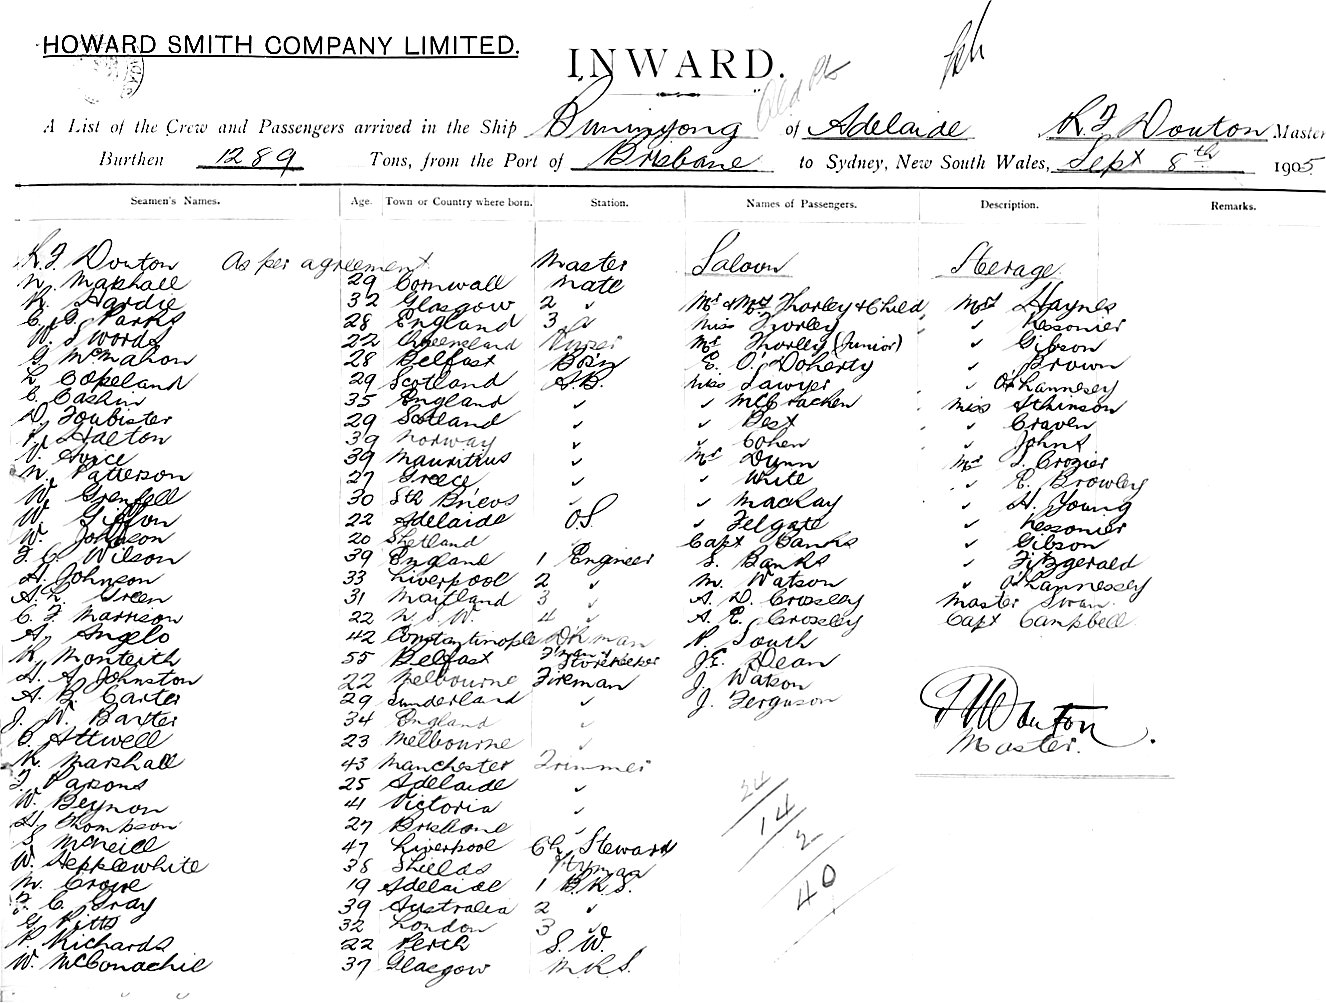 HOWARD SMITH COMPANY LIMITED.
INWARD.
A List of the Crew and Passengers arrived in the Ship Buninyong of Adelaide R. F. Douton Master
Burthen 1289 Tons, from the Port of Brisbane to Sydney, New South Wales, Sept 8th 1905
Seamen's Names. Age. Town or Country where born. Station. Names of Passengers. Description. Remarks.
R. F. Douton As per agreement Master Saloon Steerage
29 Cornwall Mate
Hardie 32 Glasgow 2 " Mr & Mrs Thorley & Child Mrs Haynes
C. G. Parks 28 England 3 " Miss Thorley " Lessonier
W. J. Words 22 Queensland Mr Thorley (Junior) " Gibson
G. McMahon 28 Belfast Bo's'n E. O'Doherty " Brown
L. Copeland 29 Scotland A.B. Miss Sawyer " O'Hannesey
C. Cashin 35 England " " McCracken Miss Atkinson
D. Foubister 29 Scotland " " Best " Craven
P. Halton 39 Norway " " Cohen " Johns
V. Avice 39 Mauritius " Mr Dunn Mr S. Crozier
N. Patterson 27 Greece " " White " E. Browley
W. Grenfell 30 Sth Brievs " " Mackay " H. Young
W. Giffon 22 Adelaide O.S. " Felgate " Lessonier
W. Johnson 20 Shetland Capt Banks " Gibson
F. C. Wilson 39 England 1 Engineer S. Banks " Fitzgerald
H. Johnson 33 Liverpool 2 " M. Watson " O'Hannessey
A. H. Green 31 Maitland 3 " A. D. Crossley Master Swan
C. F. Marrison 22 N.S.W. 4 " A. E. Crossley Capt Campbell
A. Angelo 42 Constantinople Dkman P. South
R. Monteith 55 Belfast F'man & Storekeeper J. E. Dean
H. A. Johnston 22 Melbourne Fireman J. Watson
A. B. Carter 29 Sunderland " J. Ferguson
J. W. Baxter 34 England " Douton
C. Attwell 23 Melbourne " Master.
R. Marshall 43 Manchester Trimmer
F. Parsons 25 Adelaide " 24
W. Beynon 41 Victoria " 14
H. Thompson 27 Brisbane " 2
S. McNeill 47 Liverpool Ch Steward
W. Hepplewhite 38 Shields 40
M. Crowe 19 Adelaide 1 B.R.S.
F. C. Gray 39 Australia 2 "
G. Pitts 32 London 3 "
P. Richards 22 Perth S.W.
W. McConachie 37 Glasgow M.R.S.